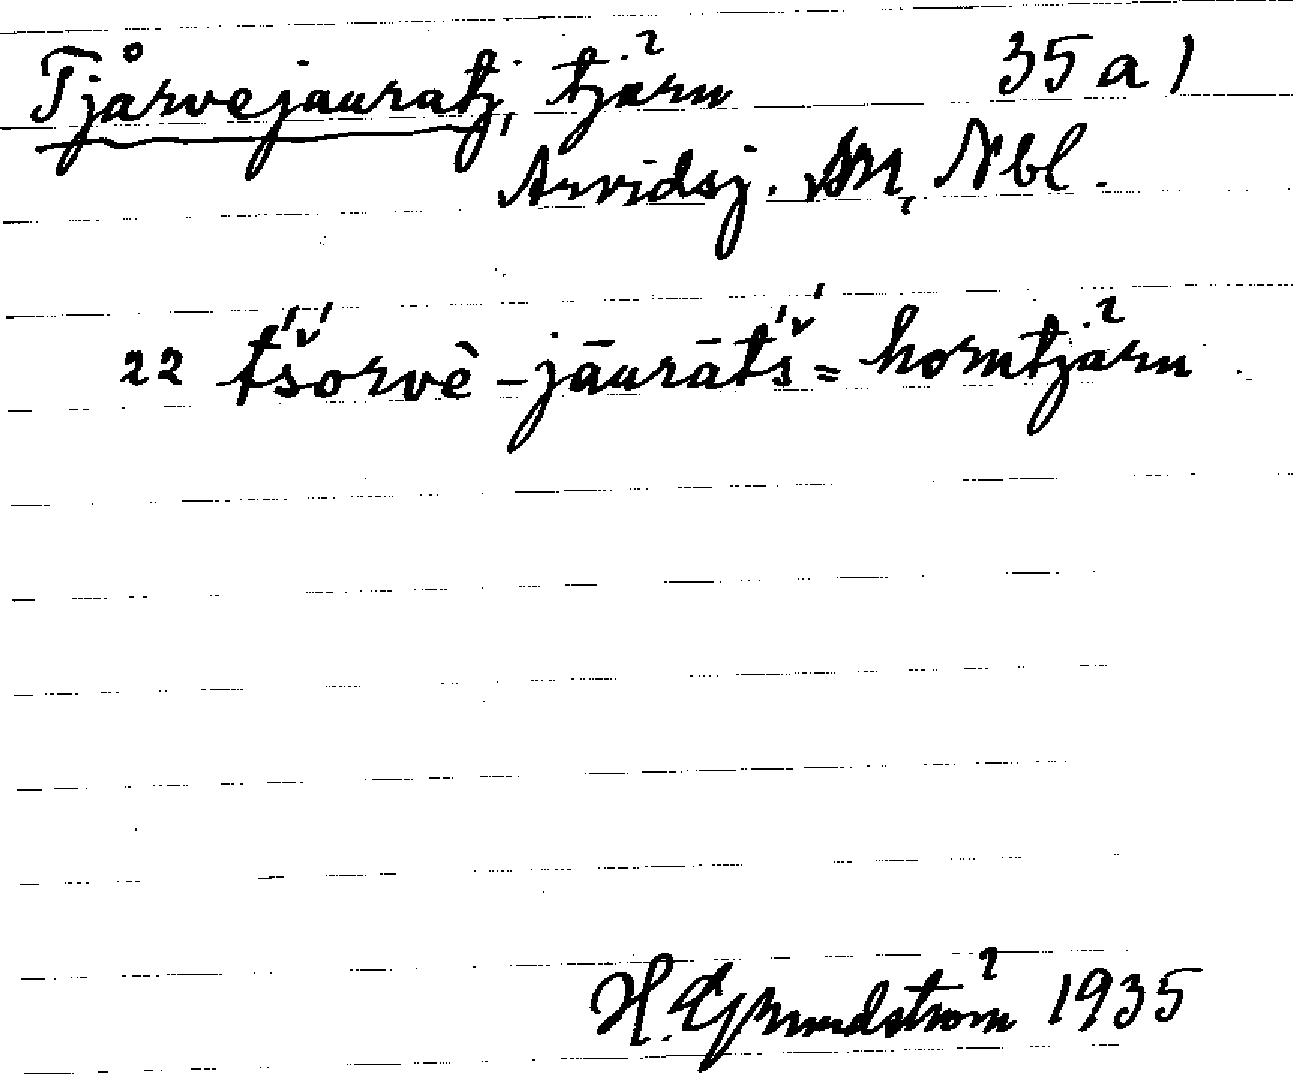 Tjårvejauratj, tjärn 35 a 1
Arvidsj. sn, Nbl.
22 t́š́orvè - jāurāt́š́ = horntjärn
H. Grundström 1935